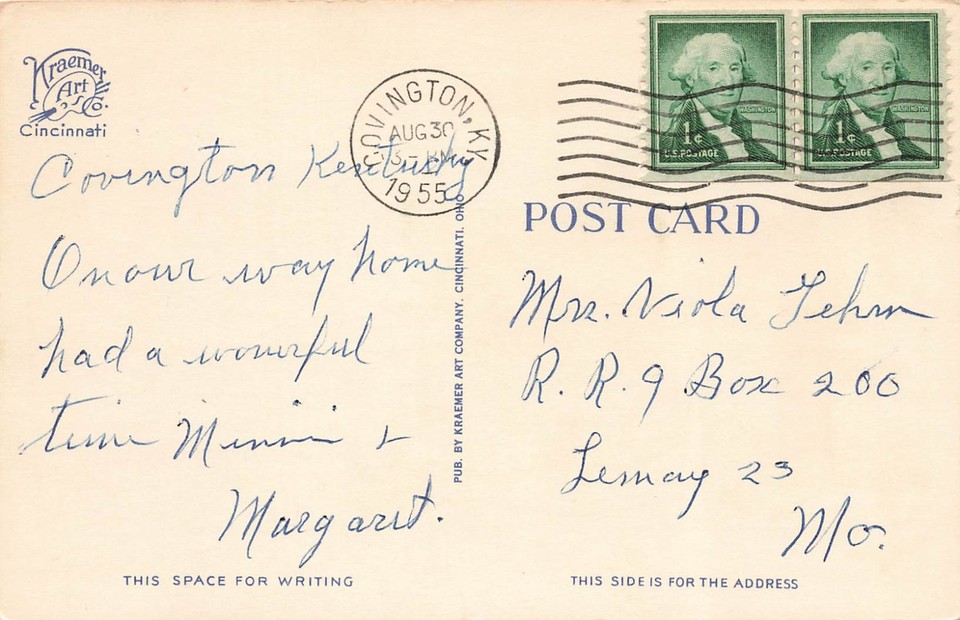 Kraemer
Art
Co.
Cincinnati
COVINGTON, KY
AUG 30
3 - PM
1955
WASHINGTON
1¢
U.S. POSTAGE
WASHINGTON
1¢
U.S. POSTAGE
POST CARD
Covington Kentucky
On our way home
had a wonerful
time Minnie &
Margaret.
PUB. BY KRAEMER ART COMPANY, CINCINNATI, OHIO
Mrs. Viola Fehrn
R. R. 9 Box 200
Lemay 23
Mo.
THIS SPACE FOR WRITING
THIS SIDE IS FOR THE ADDRESS